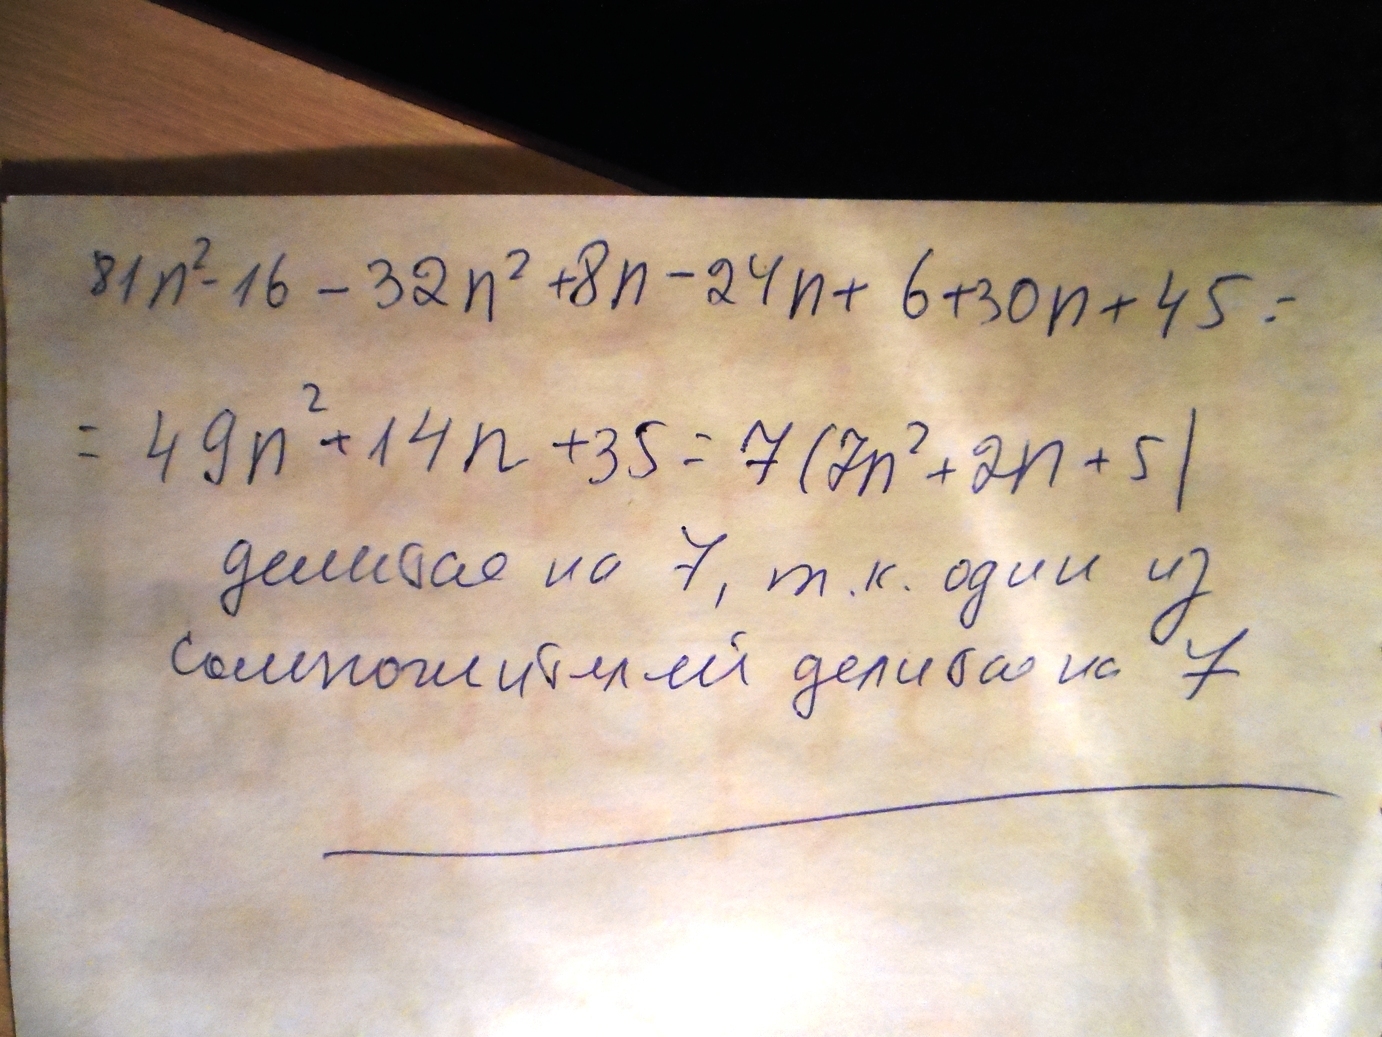 81n² - 16 - 32n² + 8n - 24n + 6 + 30n + 45 =
= 49n² + 14n + 35 = 7(7n² + 2n + 5)
делится на 7, т.к. один из
сомножителей делится на 7